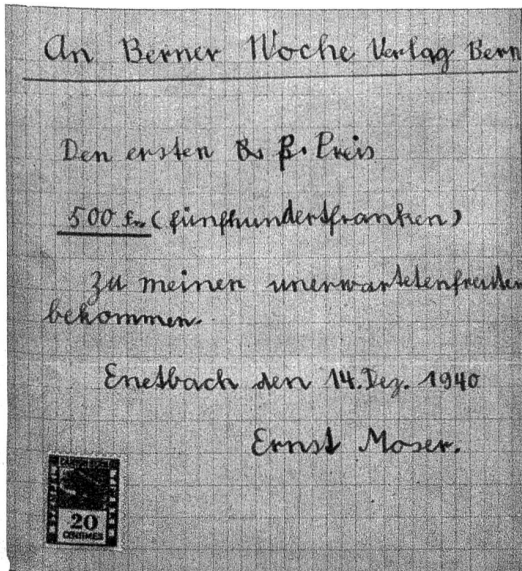 An Berner Woche Verlag Bern
Den ersten B. P. Preis
500 fr. (fünfhundertfranken)
Zu meinen unerwartetenfreuden
bekommen.
Enetbach den 14. Dez. 1940
Ernst Moser.
20
CENTIMES